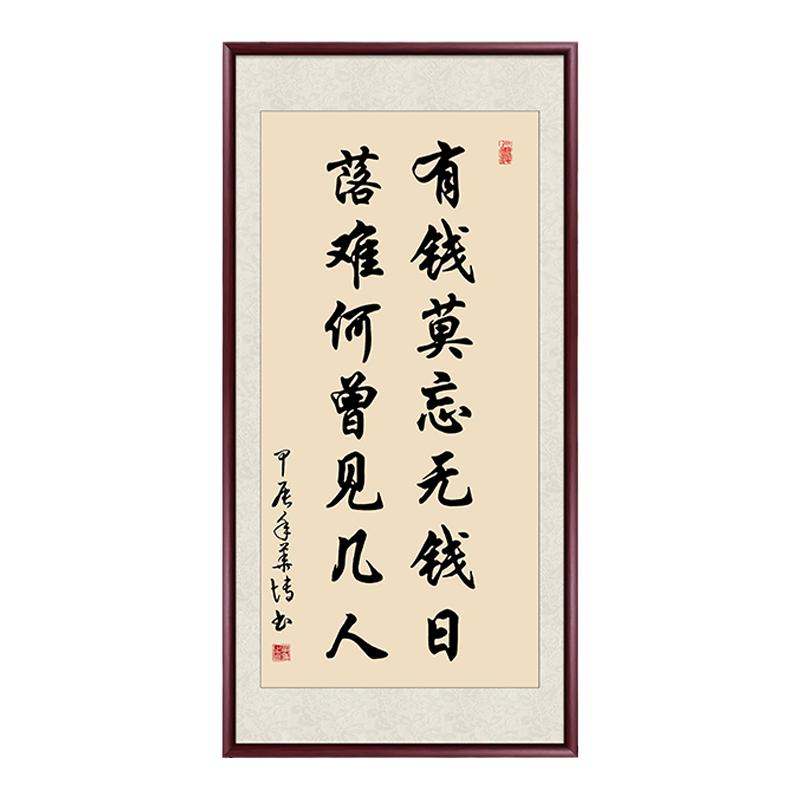 有钱莫忘无钱日
落难何曾见几人
甲辰年华博书